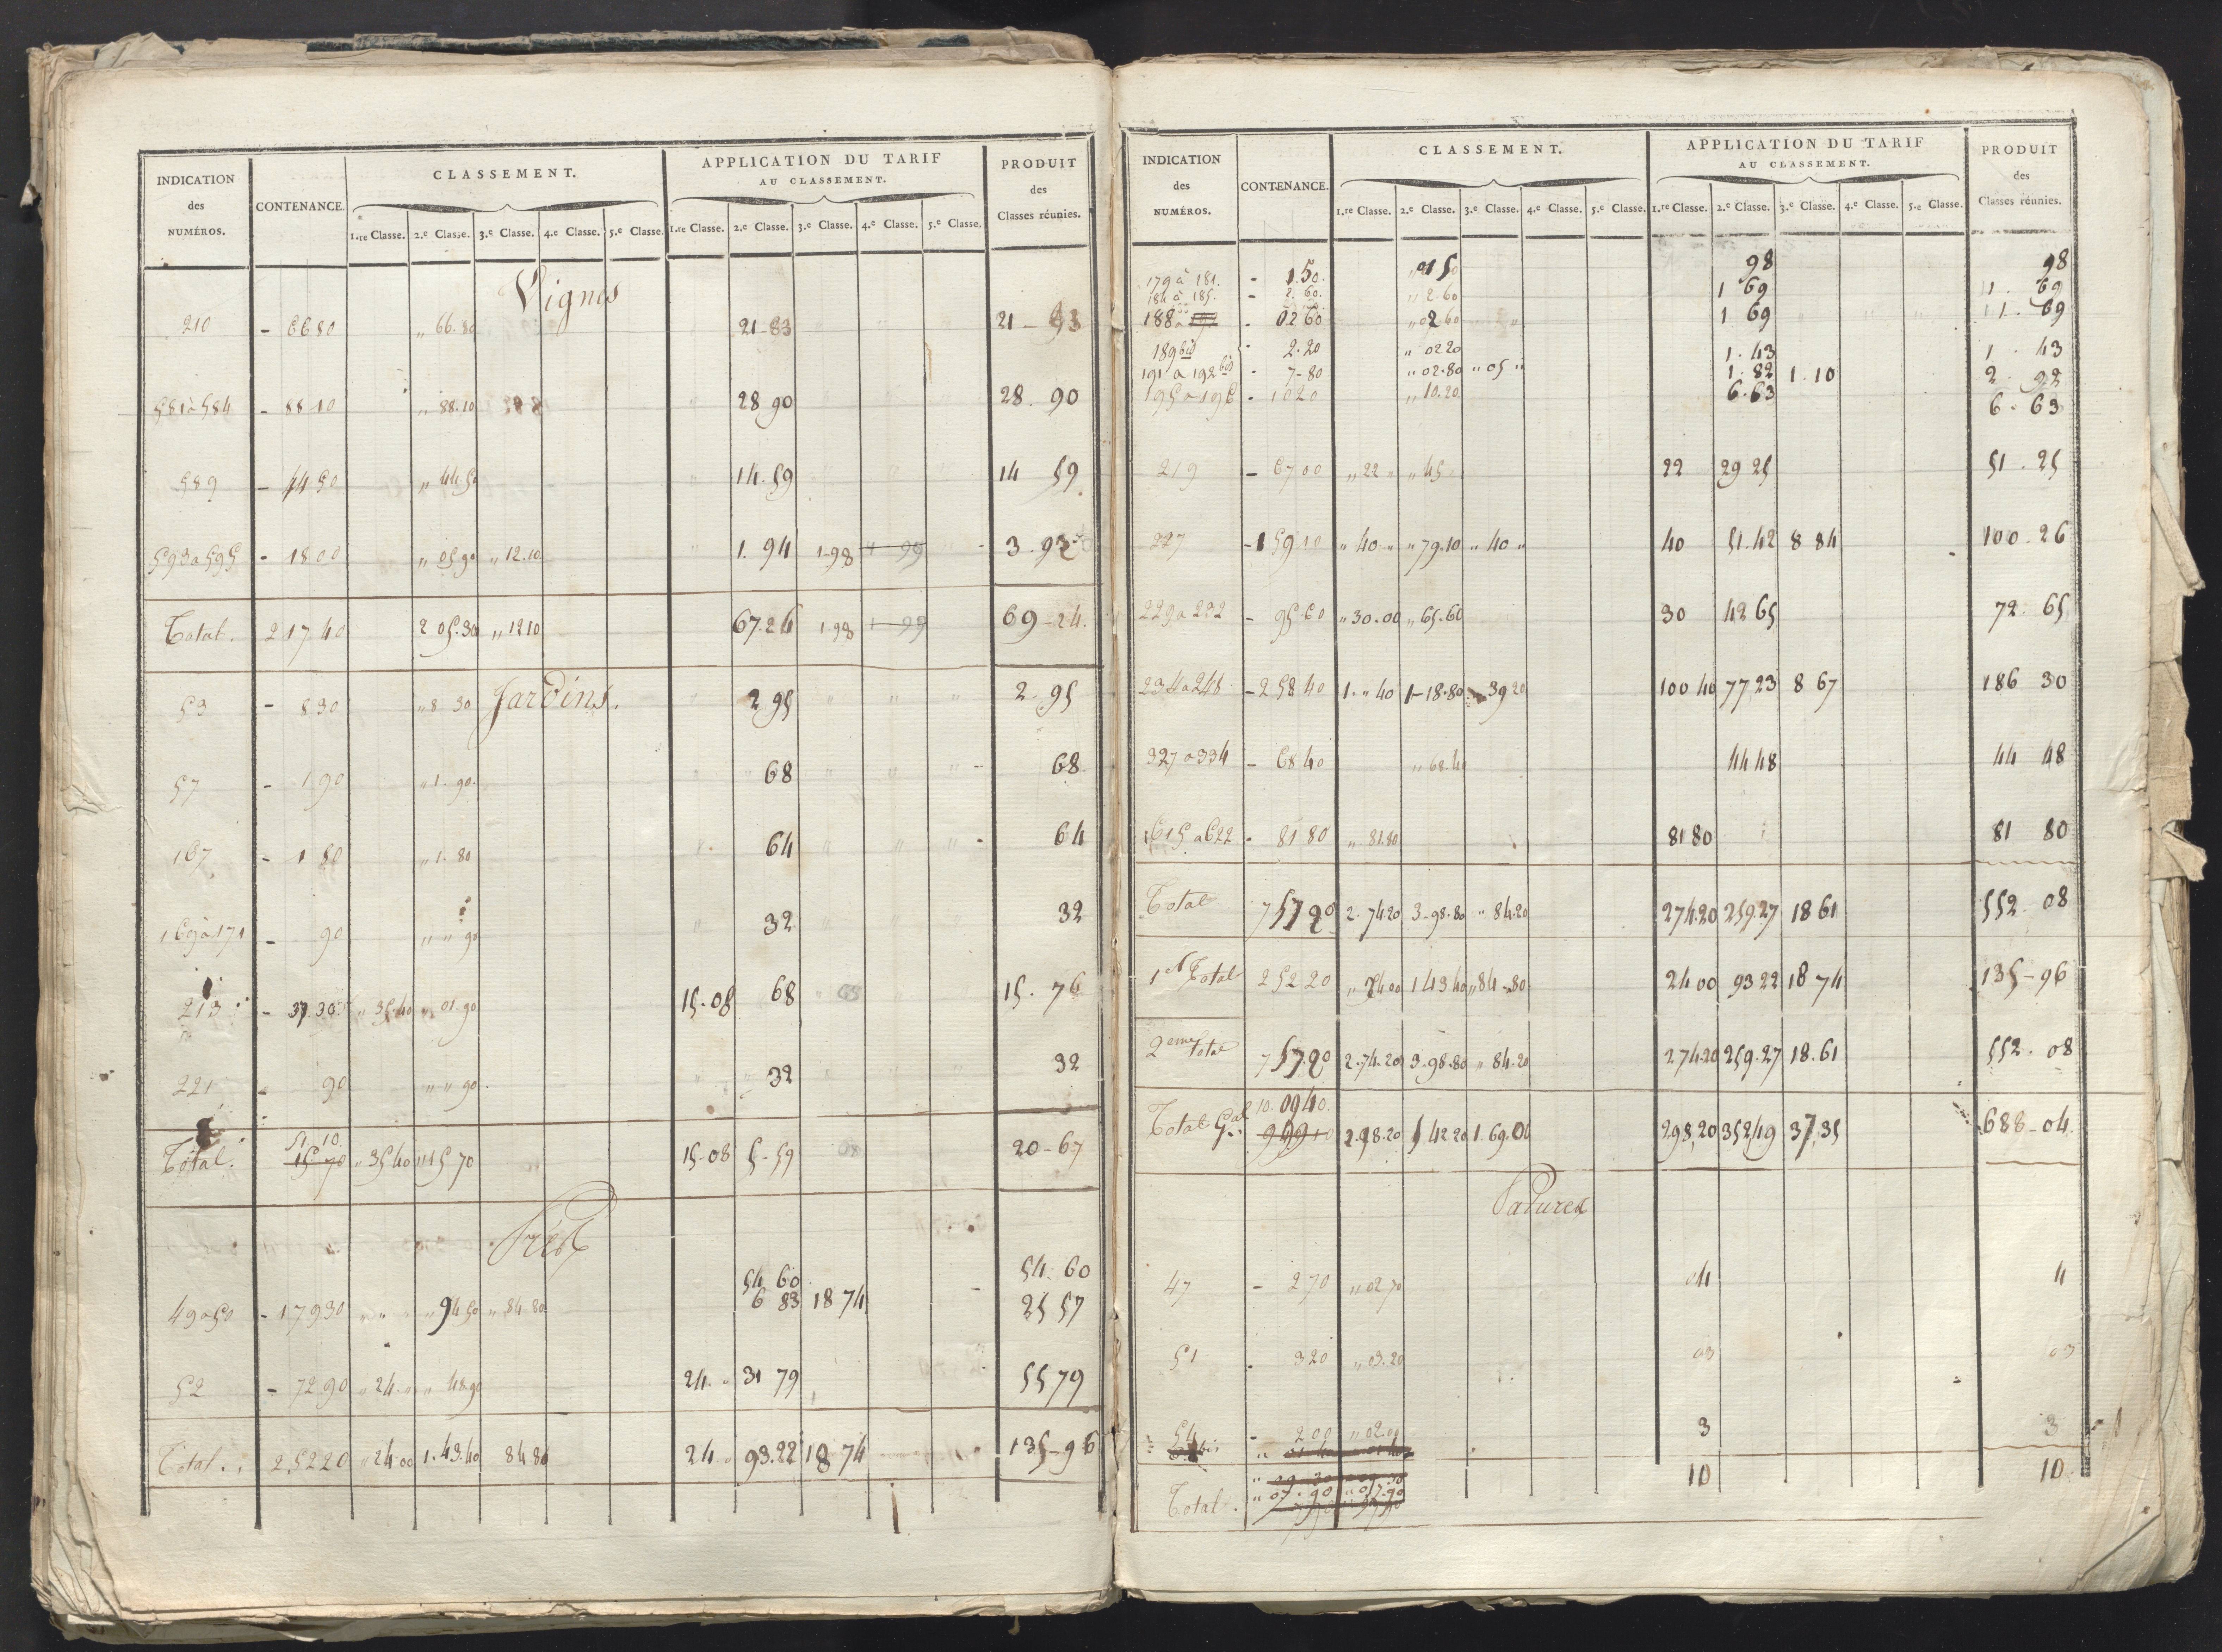 INDICATION des NUMÉROS. CONTENANCE. CLASSEMENT. APPLICATION DU TARIF AU CLASSEMENT. PRODUIT des Classes réunies.
1.re Classe. 2.e Classe. 3.e Classe. 4.e Classe. 5.e Classe. 1.re Classe. 2.e Classe. 3.e Classe. 4.e Classe. 5.e Classe.
Vignes
210 - 6680 " 66.80 21-83 21-83
581 à 584 - 88 10 " 88.10 28 90 28. 90
589 - 44 50 " 44 50 14.59 14 59
593 a 595 - 18 00 " 05 90 " 12.10 1. 94 1-98 1 99 3-92
Total. 2 17 40 2 05.30 " 12 10 67.26 1-98 1 99 69-24.
Jardins.
53 - 8 30 " 8 30 2 95 2. 95
57 - 1 90 " 1. 90. 68 68
167 - 1 80 " 1. 80 64 64
169 à 171 - 90 " " 90 32 32
213 - 37.30 " 35.40 " 01.90 15-08 68 15. 76
221 - 90 " " 90 32 32
51 10
Total. 15 70 " 35 40 " 15 70 15-08 5-59 20-67
Prés
54 60 54. 60
49 a 50 - 17930 " " " 94 50 " 84 80 6 83 18 74 25 57
52 - 72.90 " 24. " " 48.90 24. " 31 79 55 79
Total. 2,52 20 " 24 00 1.43.40 84 80 24. " 93.22 18 74 135-96
INDICATION des NUMÉROS. CONTENANCE. CLASSEMENT. APPLICATION DU TARIF AU CLASSEMENT. PRODUIT des Classes réunies.
1.re Classe. 2.e Classe. 3.e Classe. 4.e Classe. 5.e Classe. 1.re Classe. 2.e Classe. 3.e Classe. 4.e Classe. 5.e Classe.
179 à 181. - 1.50. " 01 50 98 98
184 à 185. - 2. 60. " 2.60 1 69 1. 69
188 - 02 60 " 02 60 1 69 1. 69
189 bis - 2.20 " 02 20 1. 43 1. 43
191 a 192 bis - 7-80 " 02.80 " 05 " 1. 82 1. 10 2. 92
195 a 196 - 10 20 " 10.20 6.63 6. 63
219 - 67 00 " 22 " " 45 22 29 25 51. 25
227 - 1 59 10 " 40 " " 79.10 " 40 " 40 51.42 8 84 100-26
229 a 232 - 95.60 " 30.00 " 65.60 30 42 65 72. 65
234 a 248 - 2 58 40 1. " 40 1-18.80 39 20 100 40 77 23 8 67 186 30
327 a 334 - 68 40 " 68.40 44 48 44 48
615 a 622 - 81 80 " 81.80 81 80 81 80
Total 7 57 20 2.74.20 3-98.80 " 84.20 274.20 259.27 18 61 552-08
1er Total 2 52 20 " 24 00 1 43 40 " 84-80 24 00 93 22 18 74 135-96
2eme Total 7 57.20 2.74.20 3-98.80 " 84.20 274.20 259.27 18.61 552. 08
10. 09 40.
Total Gal 2.98.20 5 42 20 1.69.00 298,20 352,49 37,35 688-04
Patures
47 - 2 70 " 02 70 04 4
51 - 3 20 " 03.20 03 03
54 - 2 00 " 02.00 3 3
Total. " 07.90 " 07.90 10 10